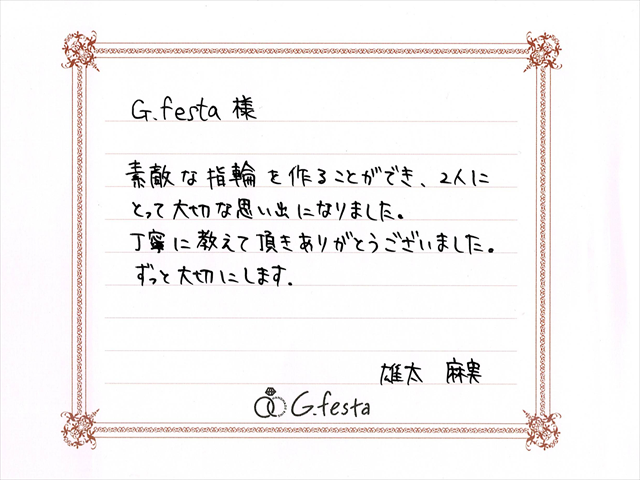 G.festa 様
素敵な指輪を作ることができ、2人に
とって大切な思い出になりました。
丁寧に教えて頂きありがとうございました。
ずっと大切にします.
雄太 麻実
G.festa